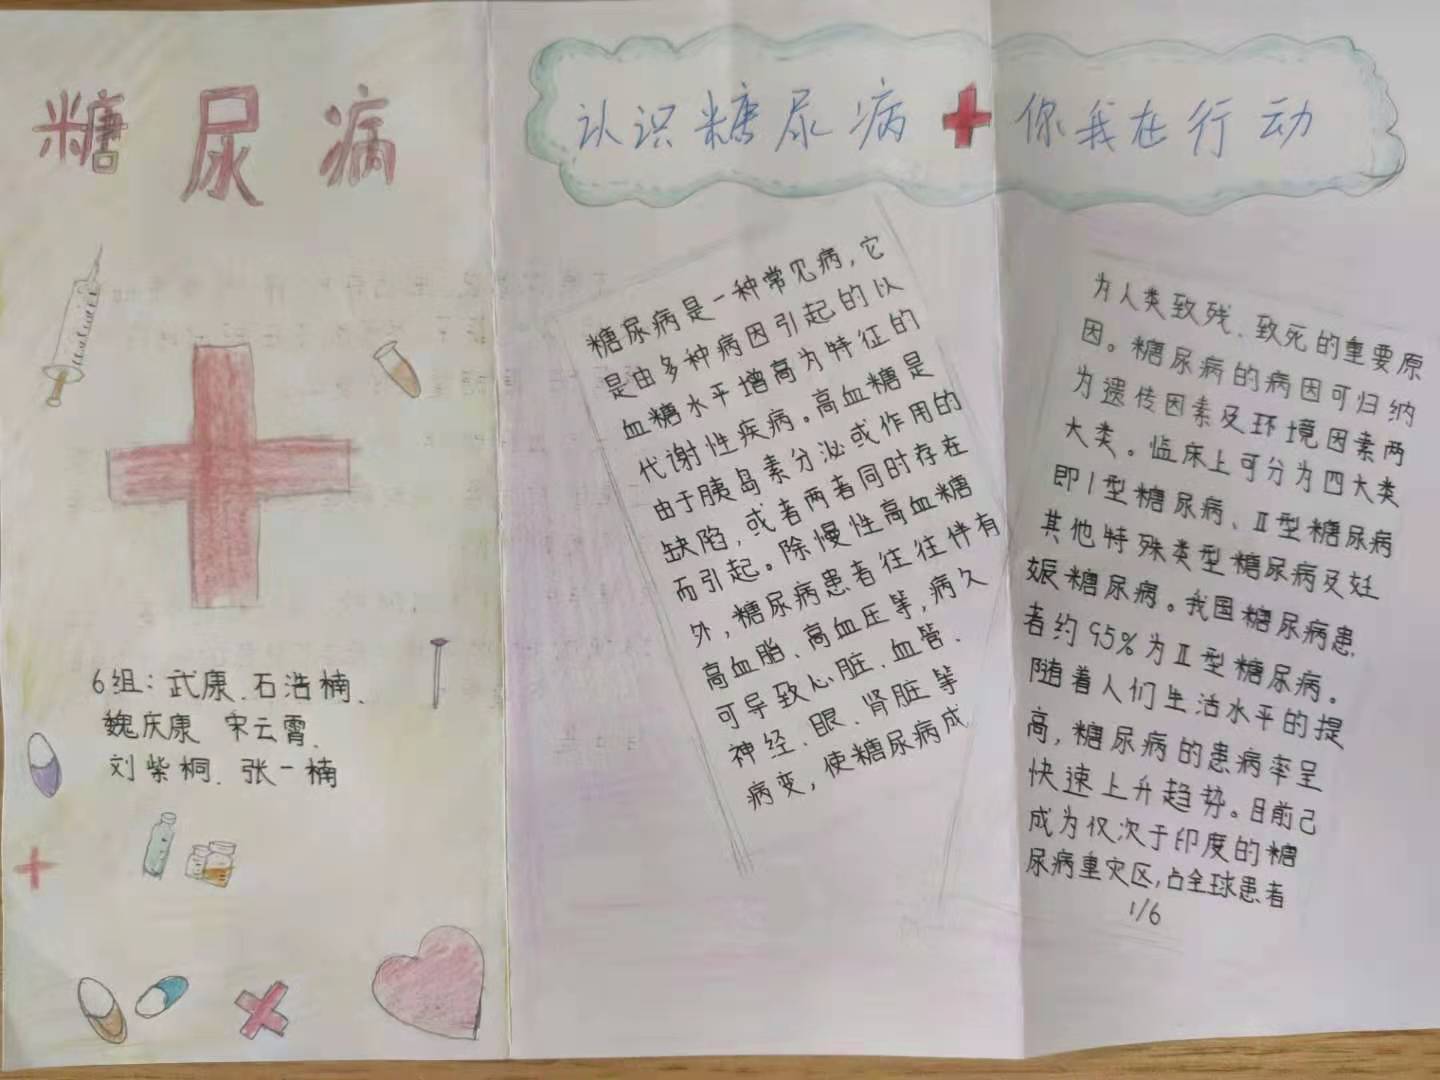 糖尿病
6组：武康、石浩楠、
魏庆康 宋云霄、
刘紫桐、张一楠
认识糖尿病 你我在行动
糖尿病是一种常见病，它
是由多种病因引起的以
血糖水平增高为特征的
代谢性疾病。高血糖是
由于胰岛素分泌或作用的
缺陷，或者两者同时存在
而引起。除慢性高血糖
外，糖尿病患者往往伴有
高血脂、高血压等，病久
可导致心脏、血管、
神经、眼、肾脏等
病变，使糖尿病成
为人类致残、致死的重要原
因。糖尿病的病因可归纳
为遗传因素及环境因素两
大类。临床上可分为四大类
即1型糖尿病、II型糖尿病
其他特殊类型糖尿病及妊
娠糖尿病。我国糖尿病患
者约95%为II型糖尿病。
随着人们生活水平的提
高，糖尿病的患病率呈
快速上升趋势。目前已
成为仅次于印度的糖
尿病重灾区，占全球患者
1/6